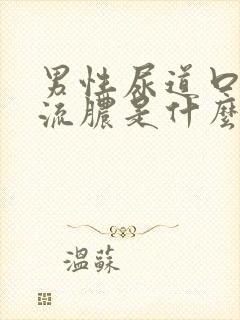 男性尿道口
流膿是什麼
溫蘇